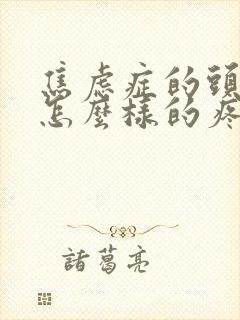 焦虑症的頭
怎麼樣的疼
諸葛亮